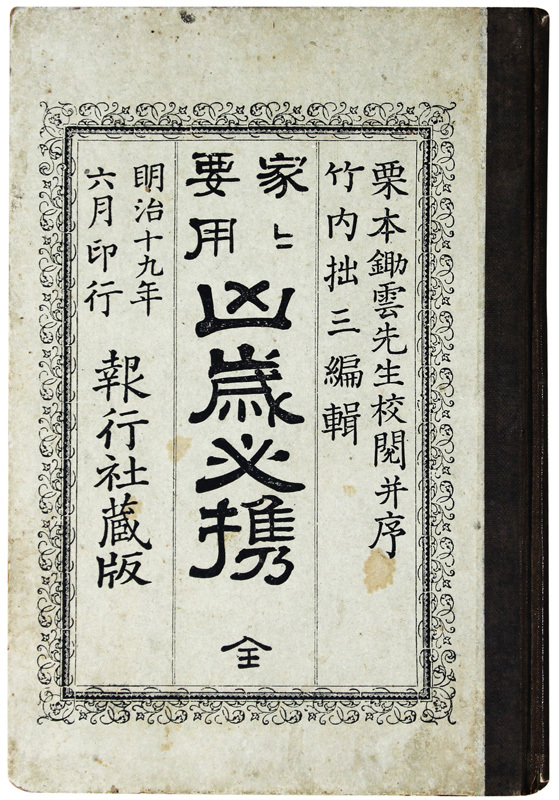 栗本鋤雲先生校閲并序
竹内拙三編輯
家〻
要用
凶歳必携
全
明治十九年
六月印行
報行社蔵版